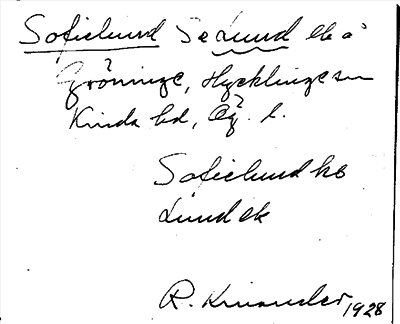 Sofielund Se Lund ek å
Grönninge, Hycklinge sn
Kinda hd, Ög. l.
Sofielund ks
Lund ek
R. Kinander 1928